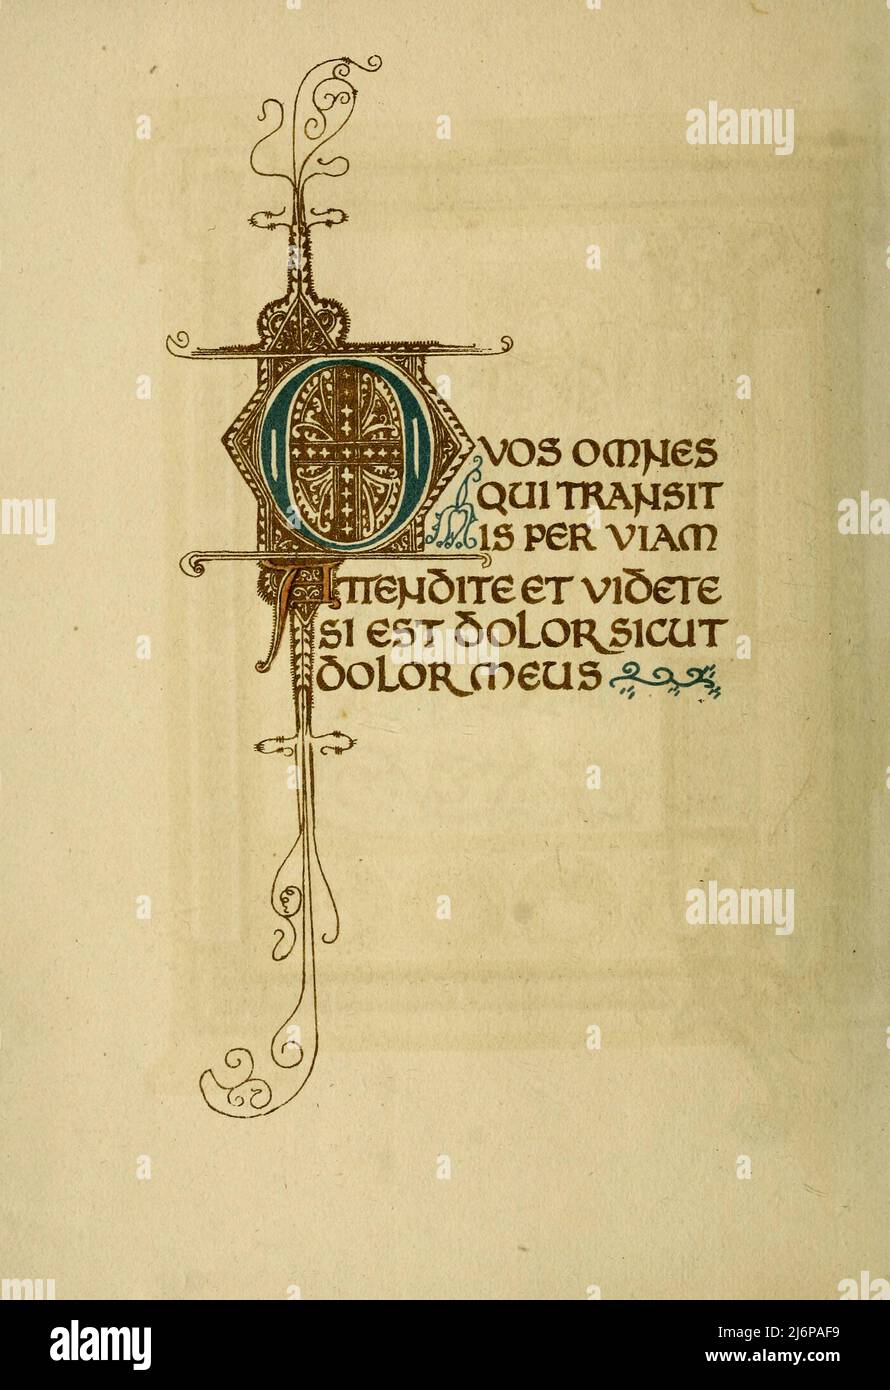 O VOS OMNES
QUI TRANSIT
IS PER VIAM
ATTENDITE ET VIDETE
SI EST DOLOR SICUT
DOLOR MEUS
a alamy
alamy
Image ID: 2J6PAF9
www.alamy.com